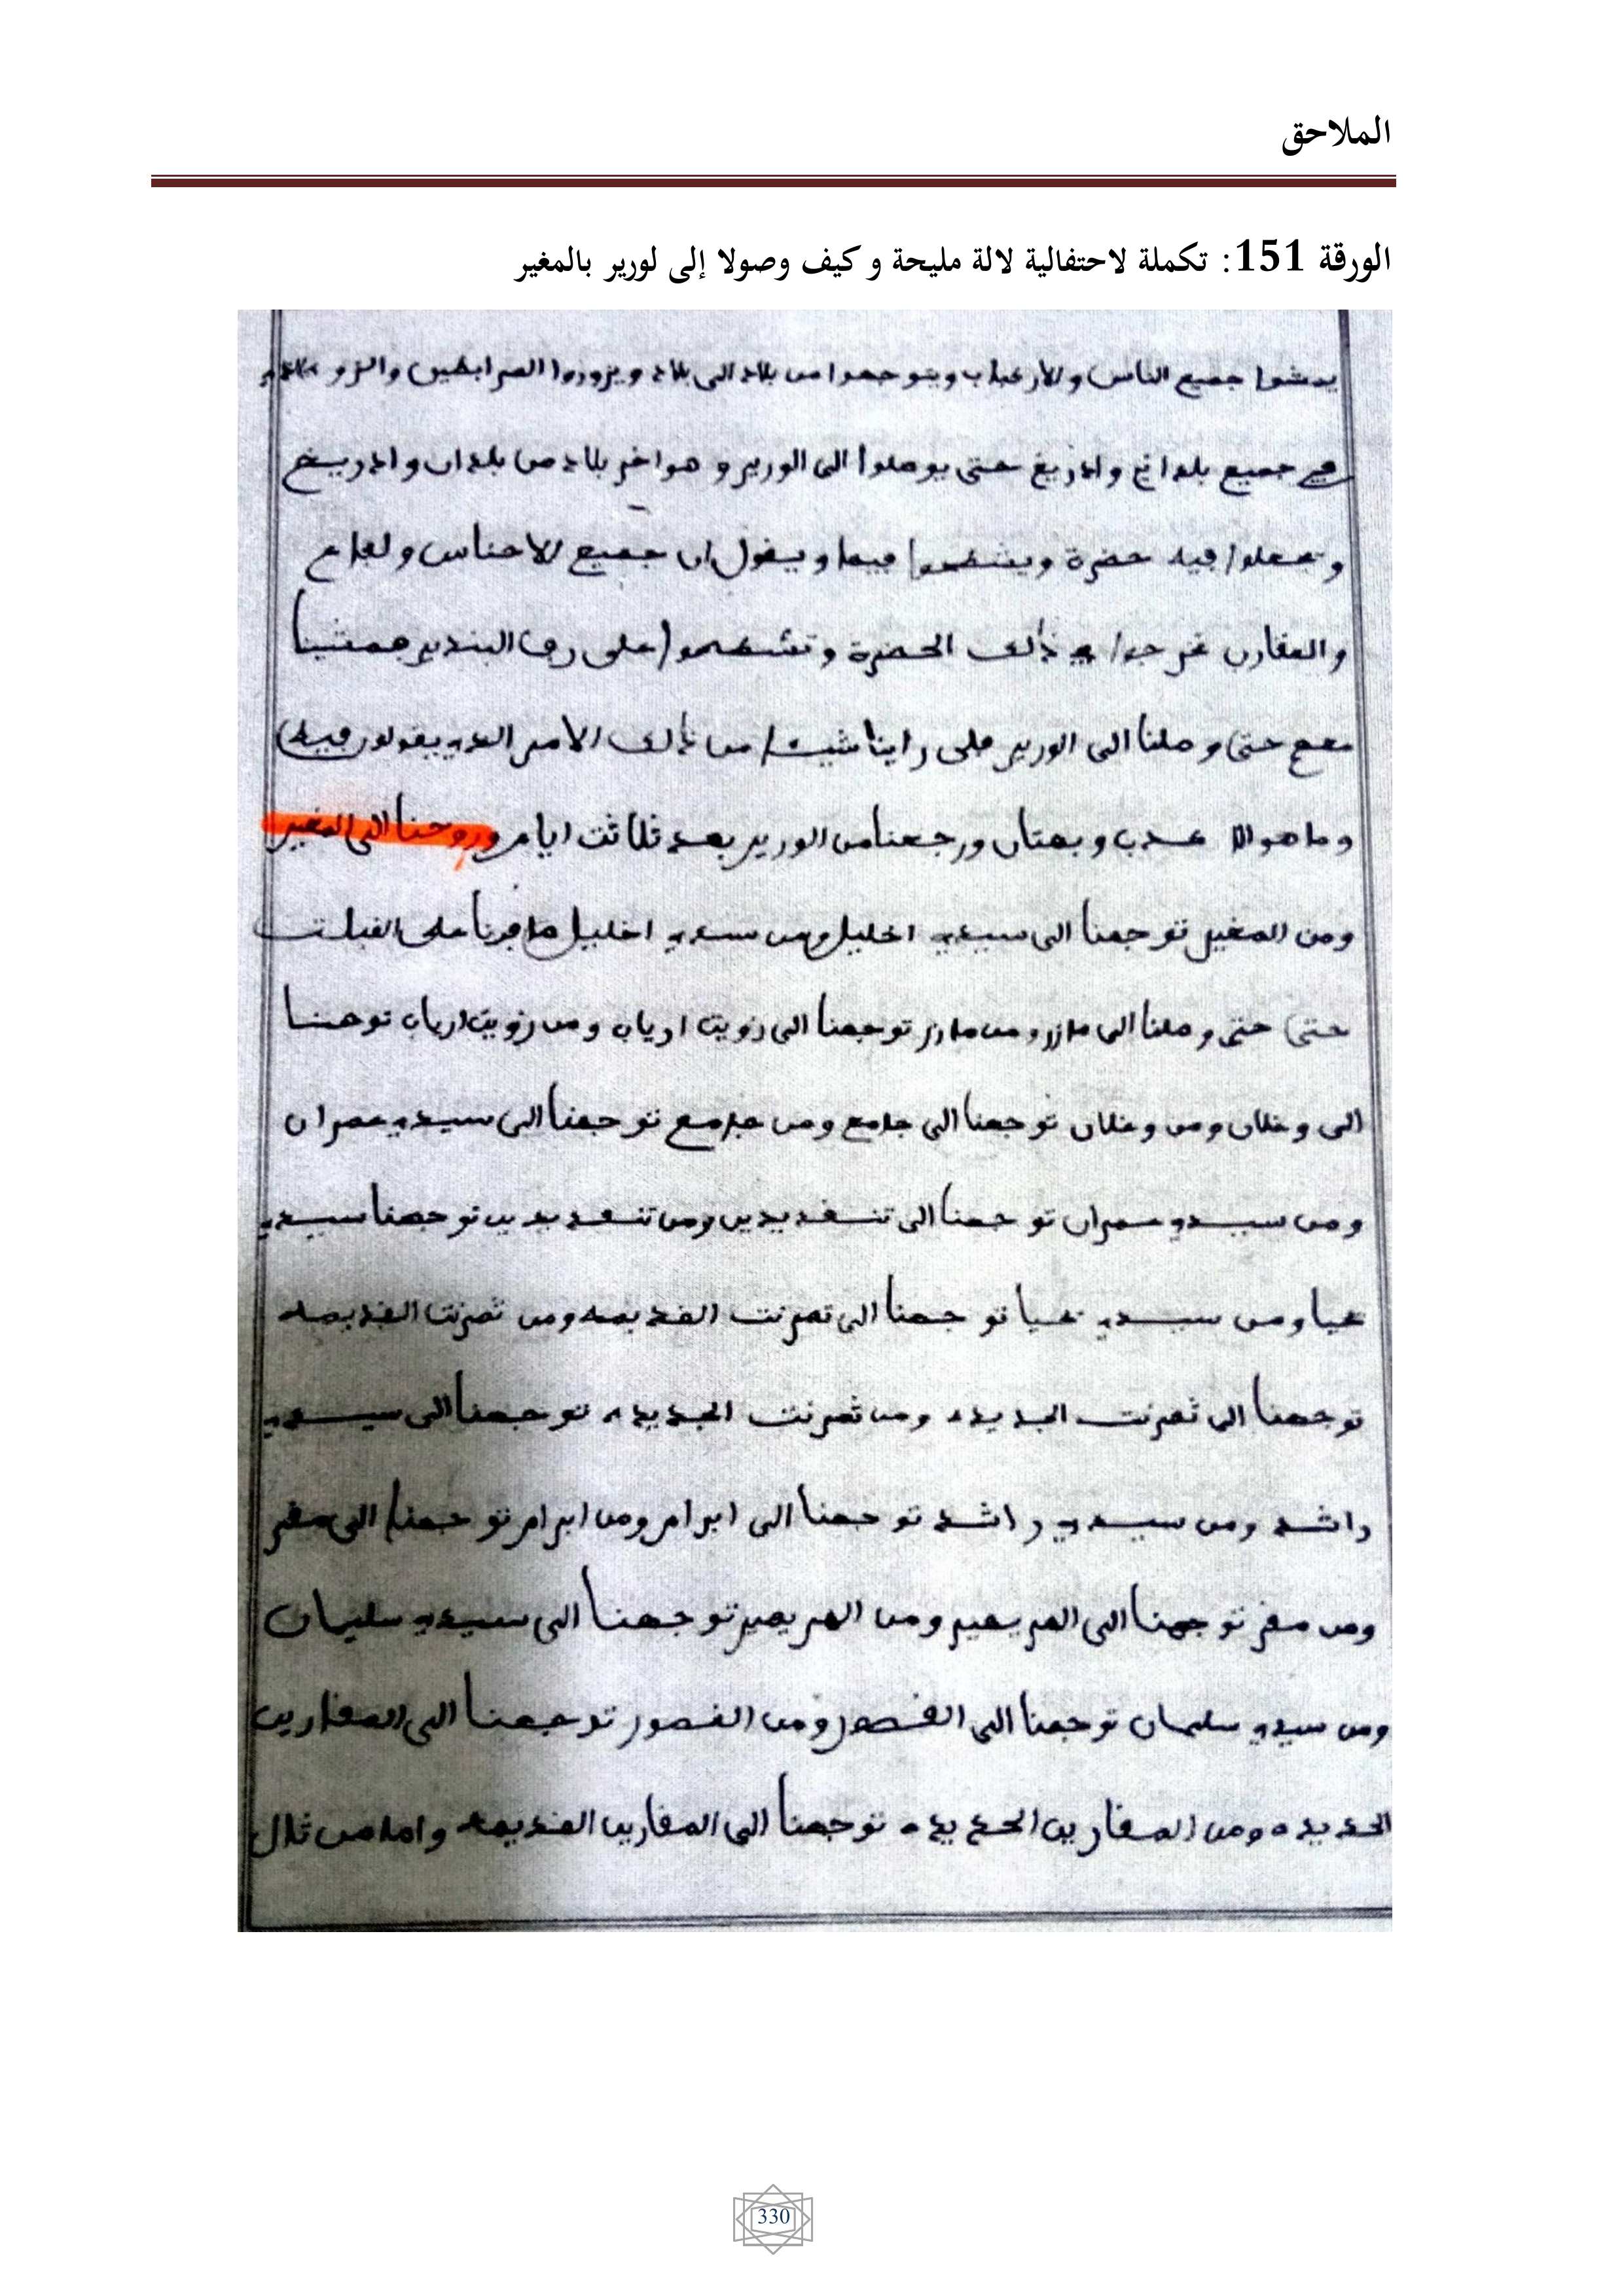 الملاحق
الورقة 151: تكملة لاحتفالية لالة مليحة وكيف وصولا إلى لورير بالمغير
يمشوا جميع الناس و يتوجهوا من بلاد الى بلاد ويزوروا المرابطين
جميع بلدان وادريغ حتى يوصلوا الى الورير و هو اخر بلاد من بلدان وادريغ
و يجعلوا فيه حضرة و فيها ويقول ان جميع الاحناس و
والعقارب ذالك الحضرة و على البندير فمشينا
معهم حتى وصلنا الى الورير راينا شيئا من ذالك الامر الذي يقولو فيه
وما هو الا كدب وبهتان ورجعنا من الورير بعد ثلاثت ايام و روحنا الى المغير
ومن المغير توجهنا الى سيدي اخليل ومن سيدي اخليل على القبلت
حتى حتى وصلنا الى مازر ومن مازر توجهنا الى زويت ارياب ومن زويت ارياب توجهنا
الى وغلان ومن وغلان توجهنا الى جامع ومن جامع توجهنا الى سيدي عمران
ومن سيدي عمران توجهنا الى تنقديدين ومن تنقديدين توجهنا سيدي
يحيا ومن سيدي يحيا توجهنا الى تمرنت القديمه ومن تمرنت القديمه
توجهنا الى تمرنت الجديده ومن تمرنت الجديده توجهنا الى سيدي
راشد ومن سيدي راشد توجهنا الى ابرام ومن ابرام توجهنا الى مقر
ومن مقر توجهنا الى الهريهير ومن الهريهير توجهنا الى سيدي سليمان
ومن سيدي سليمان توجهنا الى القصور ومن القصور توجهنا الى المقارين
الجديده ومن المقارين الجديده توجهنا الى المقارين القديمه واما من تلال
330